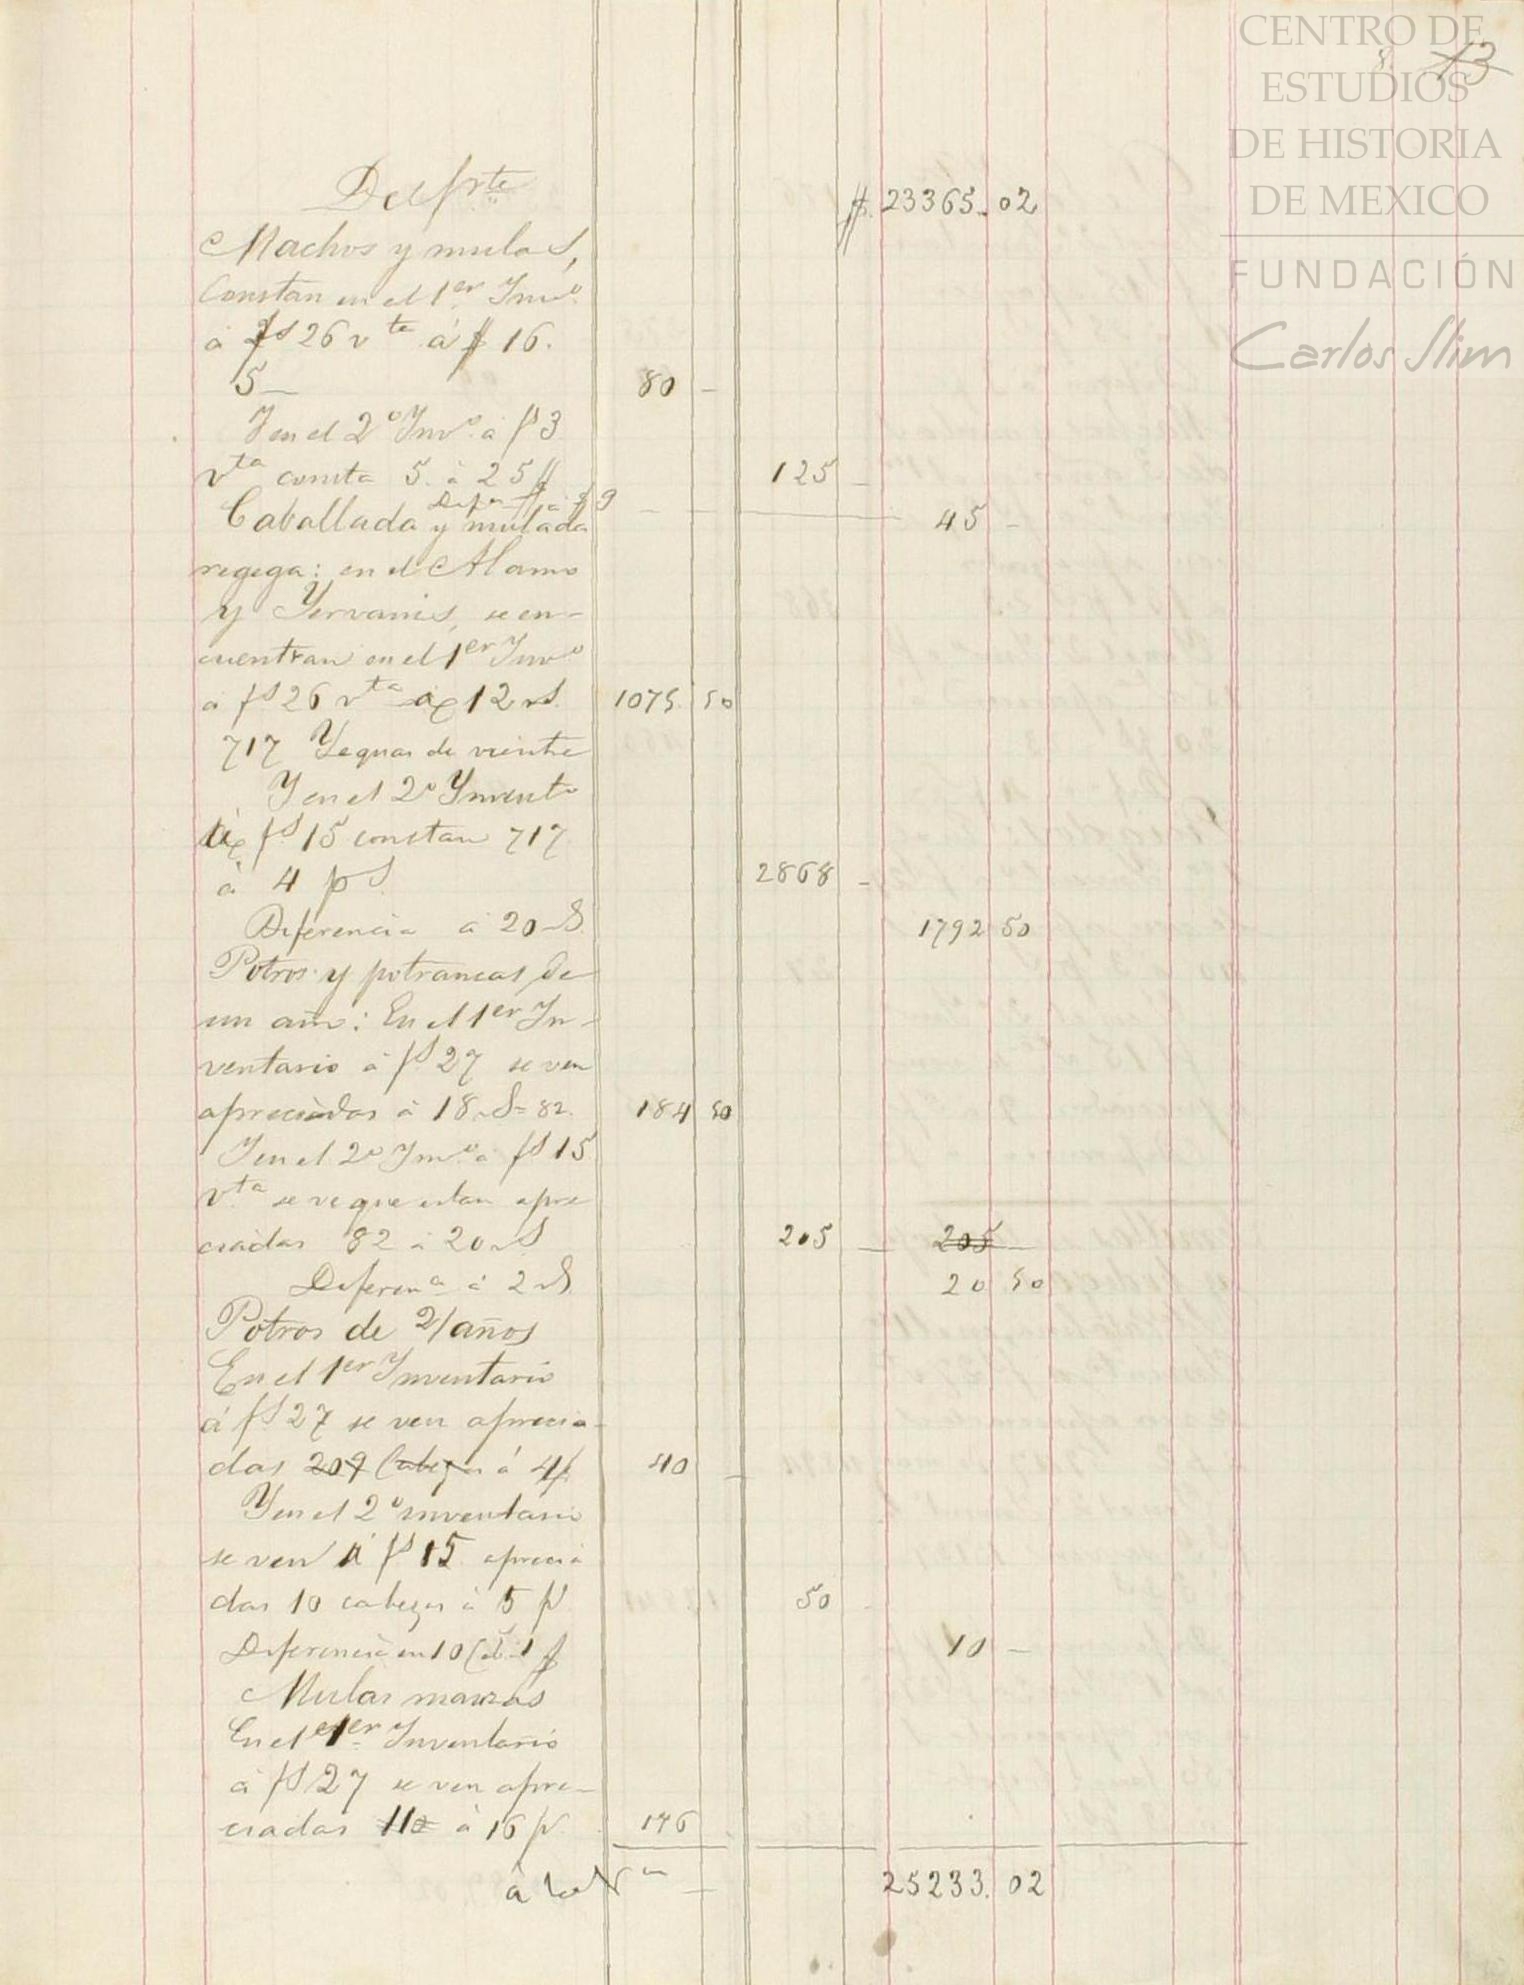 CENTRO DE
ESTUDIOS
DE HISTORIA
DE MEXICO
FUNDACIÓN
Carlos Slim
8. 13
Del frte $ 23365. 02
Machos y mulas,
Constan en el 1er Invo
á fs 26 vta á $ 16.
5 — 80 —
Y en el 2o Invo á fs 3
vta consta 5. á 25 $ 125 —
Difa á $ 9 — 45 —
Caballada y mulada
regega: en el Alamo
y Yervanis, se en-
cuentran en el 1er Invo
á fs 26 vta á 12 rs. 1075. 50
717 Yeguas de vientre
Y en el 2o Yvento
á fs 15 constan 717
á 4 ps 2868 —
Diferencia á 20 rs 1792 50
Potros y potrancas de
un año: En el 1er In-
ventario á fs 27 se ven
apreciadas á 18 rs = 82. 184 50
Y en el 2o Invo á fs 15
vta se ve que estan apre
ciadas 82 á 20 rs 205 — 205 —
Diferena á 2 rs 20 50
Potros de 2/años
En el 1er Inventario
á fs 27 se ven aprecia-
das 209 Cabezas á 4 p 40 —
Y en el 2o inventario
se ven á fs 15 aprecia
das 10 cabezas á 5 p 50 -
Diferencia en 10 Cab. 1 $ 10 —
Mulas manzas
En el 1er Inventario
á fs 27 se ven apre-
ciadas 11 á 16 p. 176
á la Va — 25233. 02